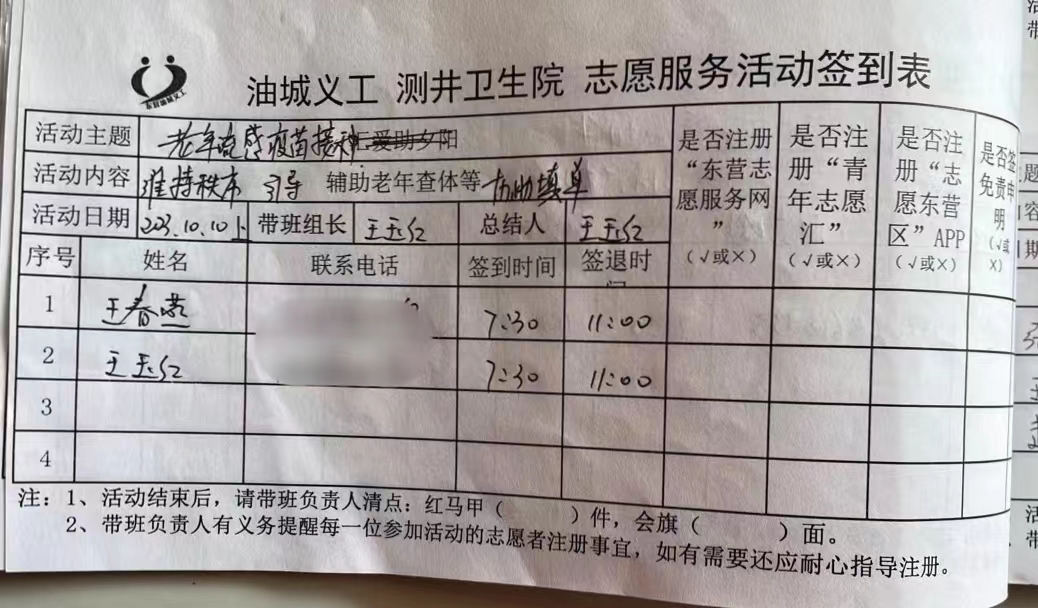 东营油城义工
油城义工 测井卫生院 志愿服务活动签到表
活动主题 老年流感疫苗接种 爱助夕阳
是否注册“东营志愿服务网”(√或×)
是否注册“青年志愿汇”(√或×)
是否注册“志愿东营区”APP(√或×)
是否签免责申明(√或×)
活动内容 维持秩序 引导 辅助老年查体等 协助填单
活动日期 2023.10.10上 带班组长 王玉红 总结人 王玉红
序号 姓名 联系电话 签到时间 签退时间
1 王春燕 7:30 11:00
2 王玉红 7:30 11:00
3
4
注:1、活动结束后,请带班负责人清点:红马甲( )件,会旗( )面。
2、带班负责人有义务提醒每一位参加活动的志愿者注册事宜,如有需要还应耐心指导注册。